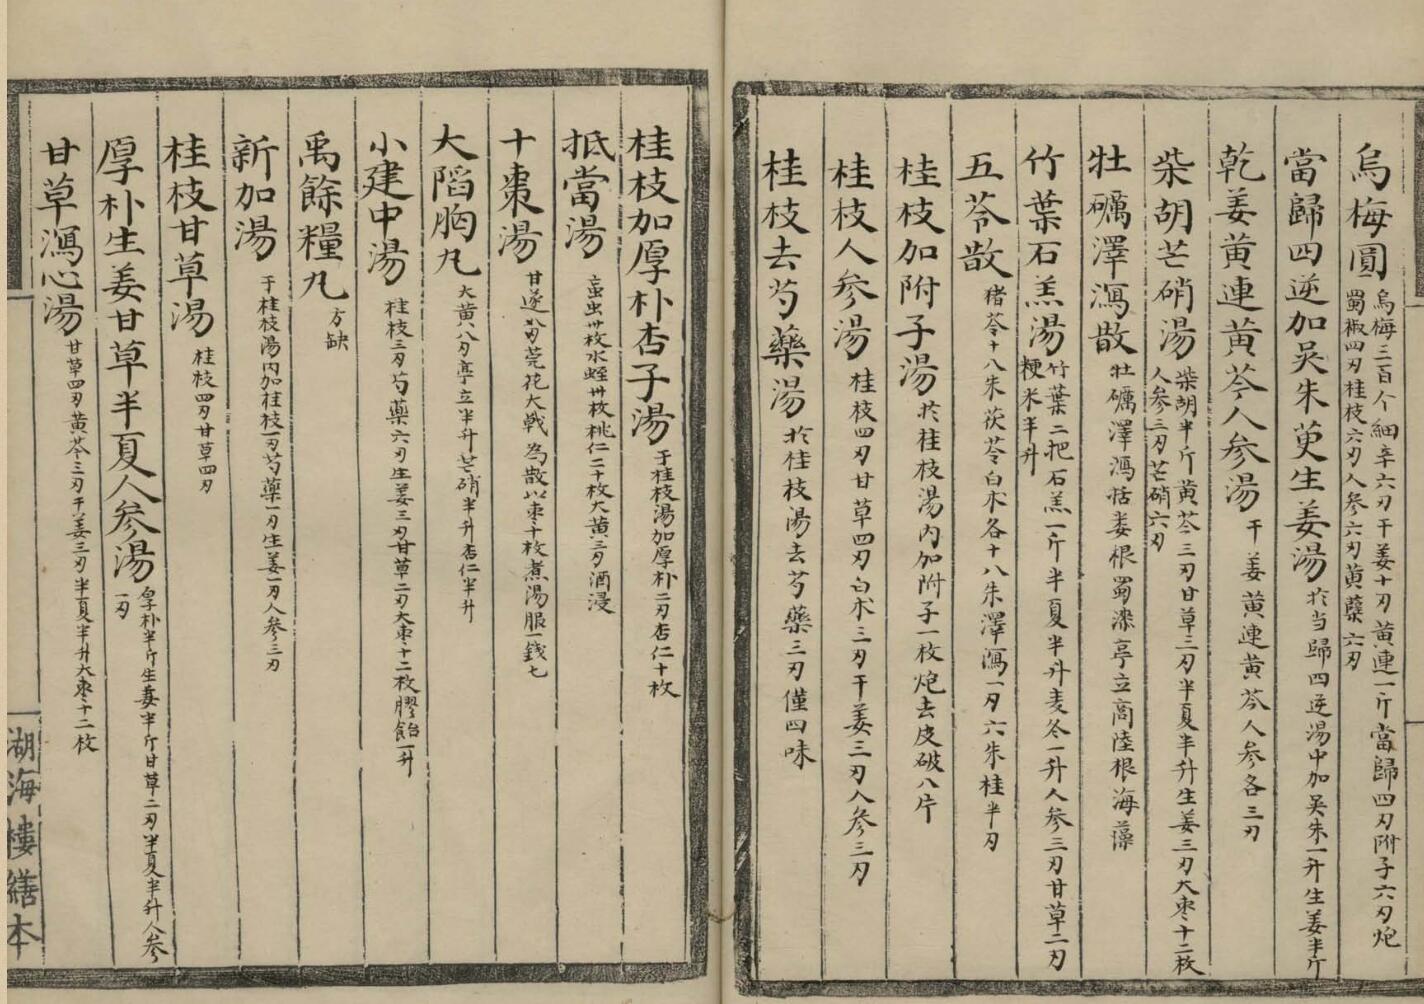 烏梅圓 烏梅三百个細辛六刃干姜十刃黄連一斤當歸四刃附子六刃炮
蜀椒四刃桂枝六刃人参六刃黄蘗六刃
當歸四逆加吴朱萸生姜湯 於当歸四逆湯中加吴朱一升生姜半斤
乾姜黄連黄芩人参湯 干姜黄連黄芩人参各三刃
柴胡芒硝湯 柴胡半斤黄芩三刃甘草三刃半夏半升生姜三刃大枣十二枚
人参三刃芒硝六刃
牡礪澤瀉散 牡礪澤瀉栝蒌根蜀漆亭立商陸根海藻
竹葉石羔湯 竹葉二把石羔一斤半夏半升麦冬一升人参三刃甘草二刃
粳米半升
五苓散 猪苓十八朱茯苓白朮各十八朱澤瀉一刃六朱桂半刃
桂枝加附子湯 於桂枝湯内加附子一枚炮去皮破八片
桂枝人参湯 桂枝四刃甘草四刃白朮三刃干姜三刃人参三刃
桂枝去芍藥湯 於桂枝湯去芍藥三刃僅四味
桂枝加厚朴杏子湯 于桂枝湯加厚朴二刃杏仁十枚
抵當湯 䖟虫卅枚水蛭卅枚桃仁二十枚大黄三刃酒浸
十棗湯 甘遂 芫花大戟 為散以枣十枚煮湯服一錢七
大陷胸丸 大黄八刃亭立半升芒硝半升杏仁半升
小建中湯 桂枝三刃芍藥六刃生姜三刃甘草二刃大枣十二枚膠飴一升
禹餘糧丸 方缺
新加湯 于桂枝湯内加桂枝一刃芍藥一刃生姜一刃人参三刃
桂枝甘草湯 桂枝四刃甘草四刃
厚朴生姜甘草半夏人参湯 厚朴半斤生姜半斤甘草二刃半夏半升人参
一刃
甘草瀉心湯 甘草四刃黄芩三刃干姜三刃半夏半升大枣十二枚
湖海樓繕本